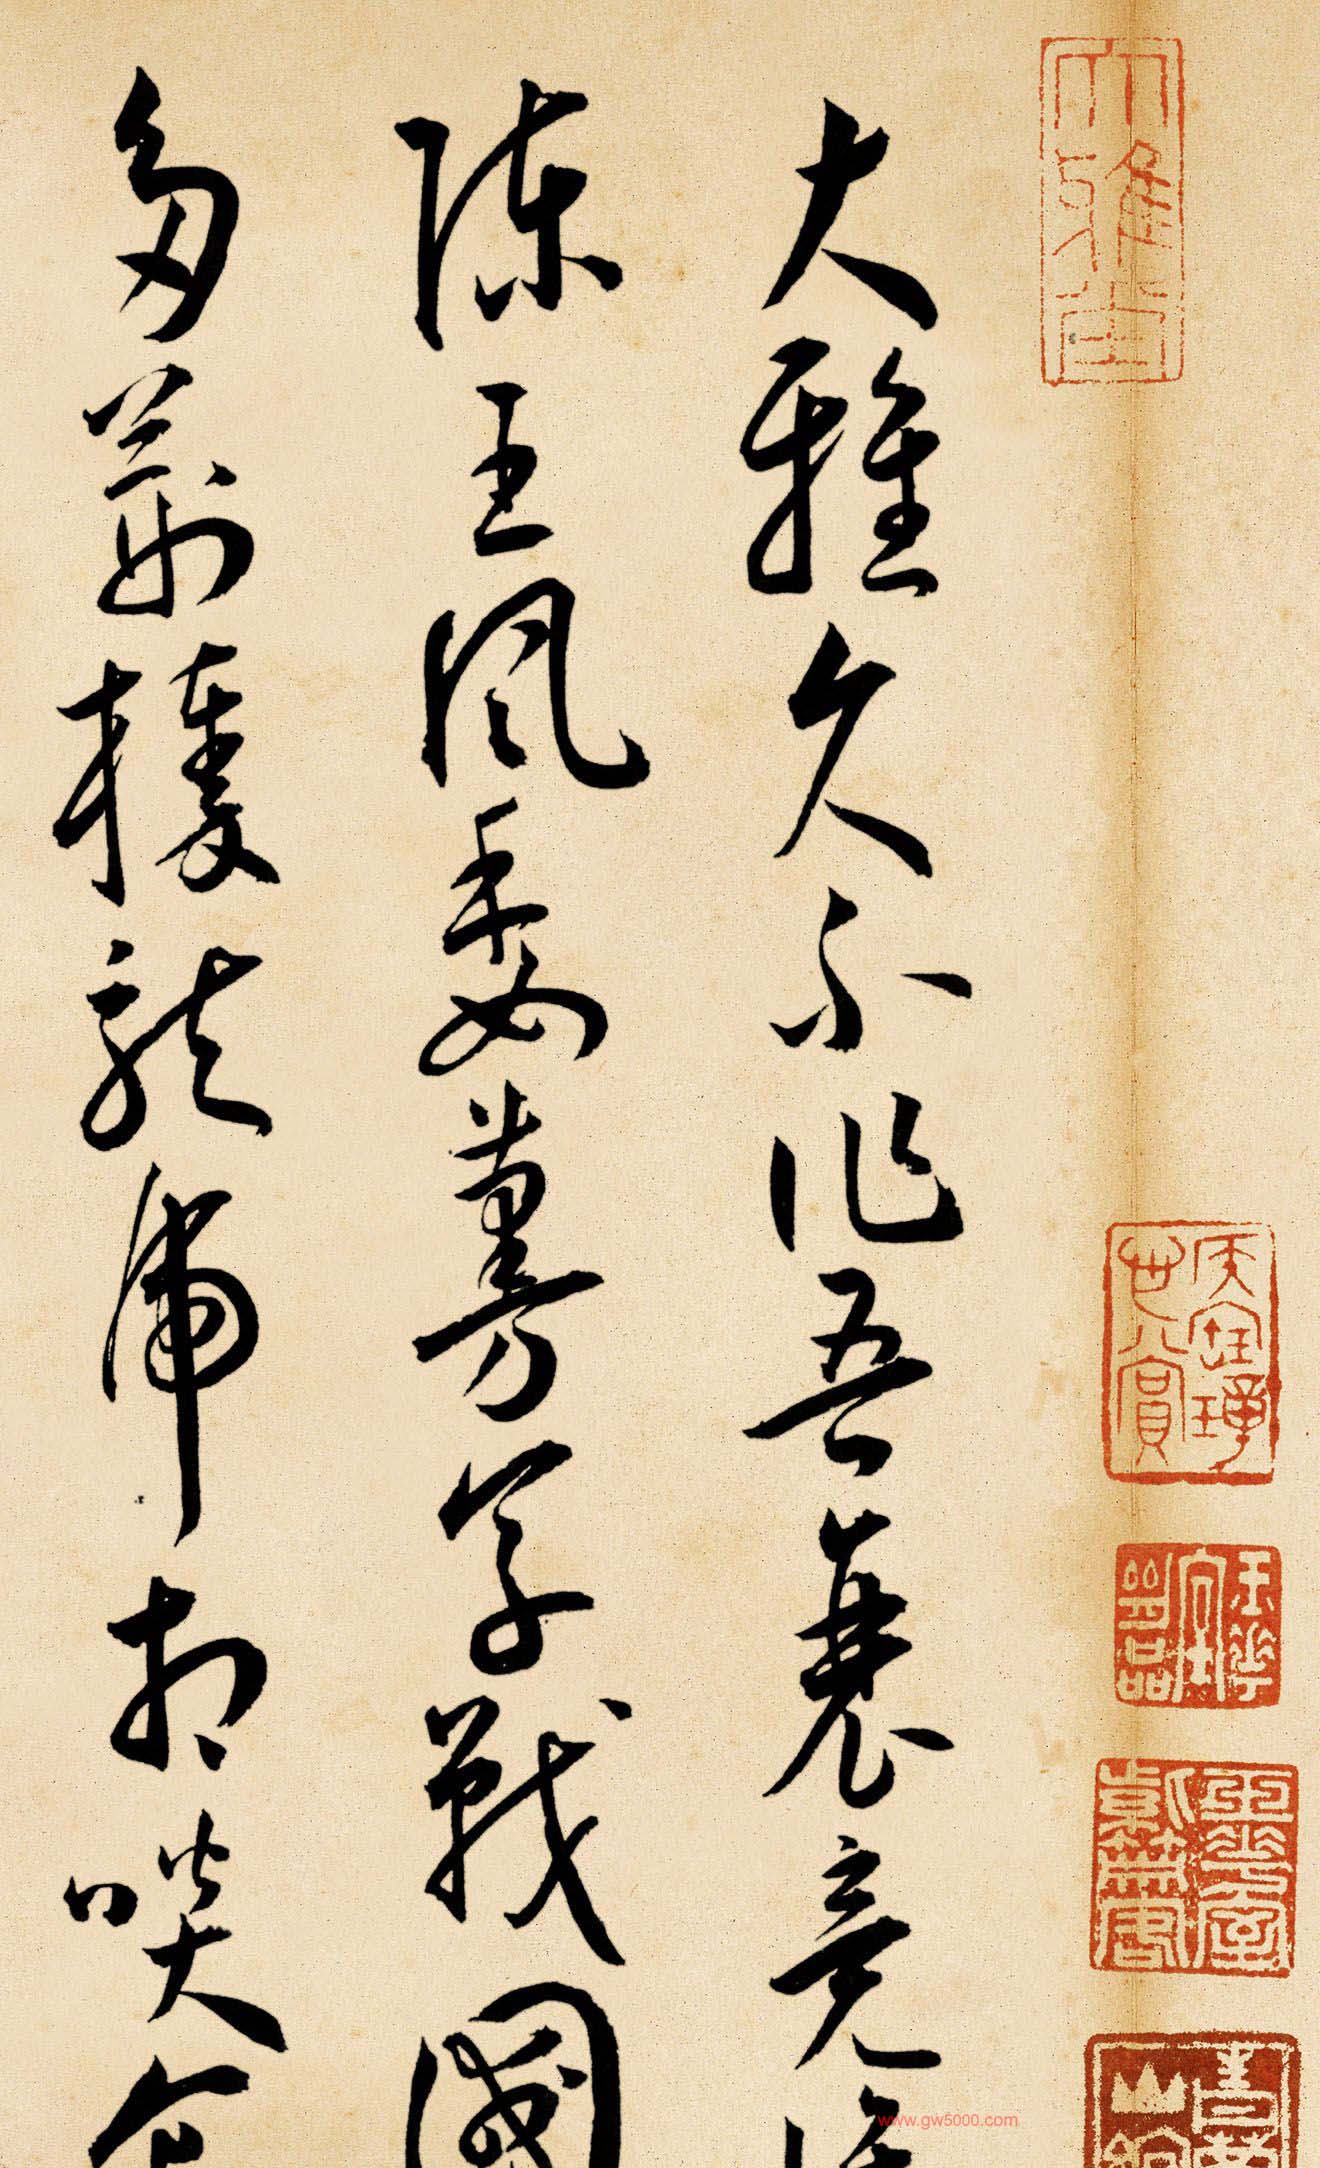 大雅久不作吾衰竟
陳王風委蔓草戰國
多荊榛龍虎相啖
www.gw5000.com